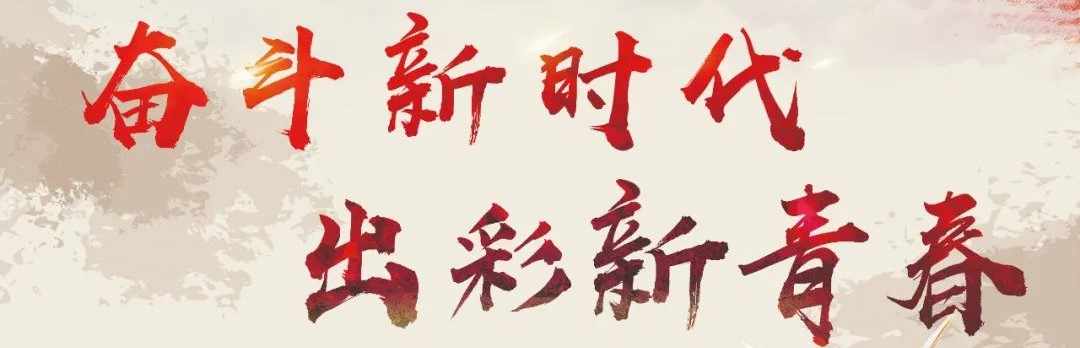 奋斗新时代
出彩新青春